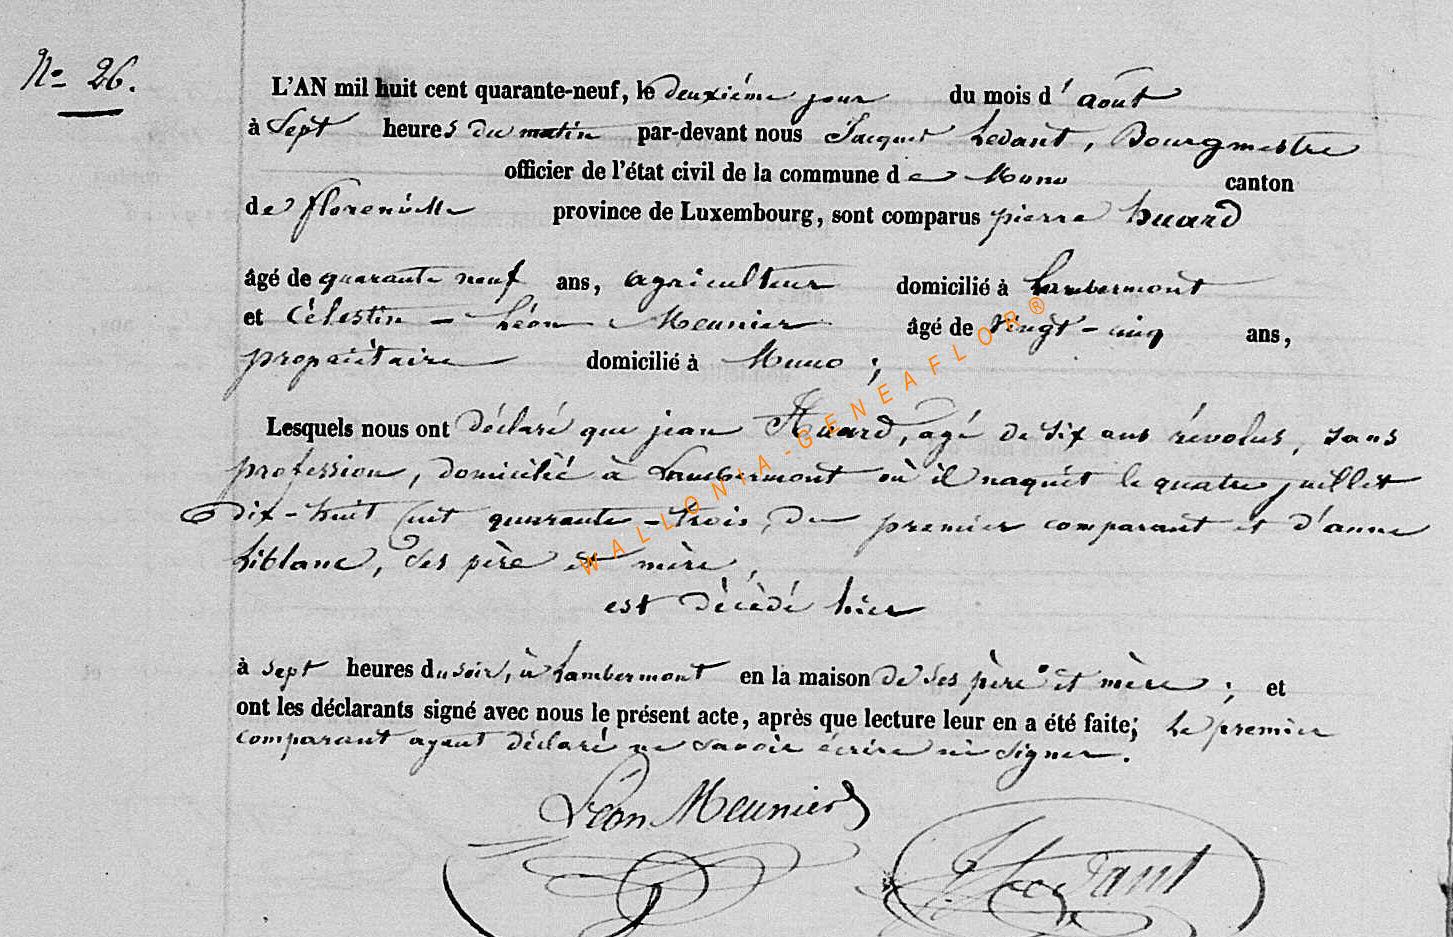 N° 26.
L'AN mil huit cent quarante-neuf, le deuxième jour du mois d'août
à Sept heures du matin par-devant nous Jacques Ledant, Bourgmestre
officier de l'état civil de la commune de Muno canton
de florenville province de Luxembourg, sont comparus pierre huard
âgé de quarante neuf ans, agriculteur domicilié à Lambermont
et Célestin - Léon Meunier âgé de Vingt-cinq ans,
propriétaire domicilié à Muno ;
Lesquels nous ont déclaré que jean Huard, agé de Six ans révolus, sans
profession, domicilié à Lambermont où il naquit le quatre juillet
dix-huit cent quarante-trois, du premier comparant et d'anne
Liblanc, ses père et mère,
est décédé hier
à sept heures du soir, à Lambermont en la maison de Ses père et mère ; et
ont les déclarants signé avec nous le présent acte, après que lecture leur en a été faite; Le premier
comparant ayant déclaré ne Savoir écrire ni Signer.
Léon Meunier
J Ledant
WALLONIA-GENEAFLOR®